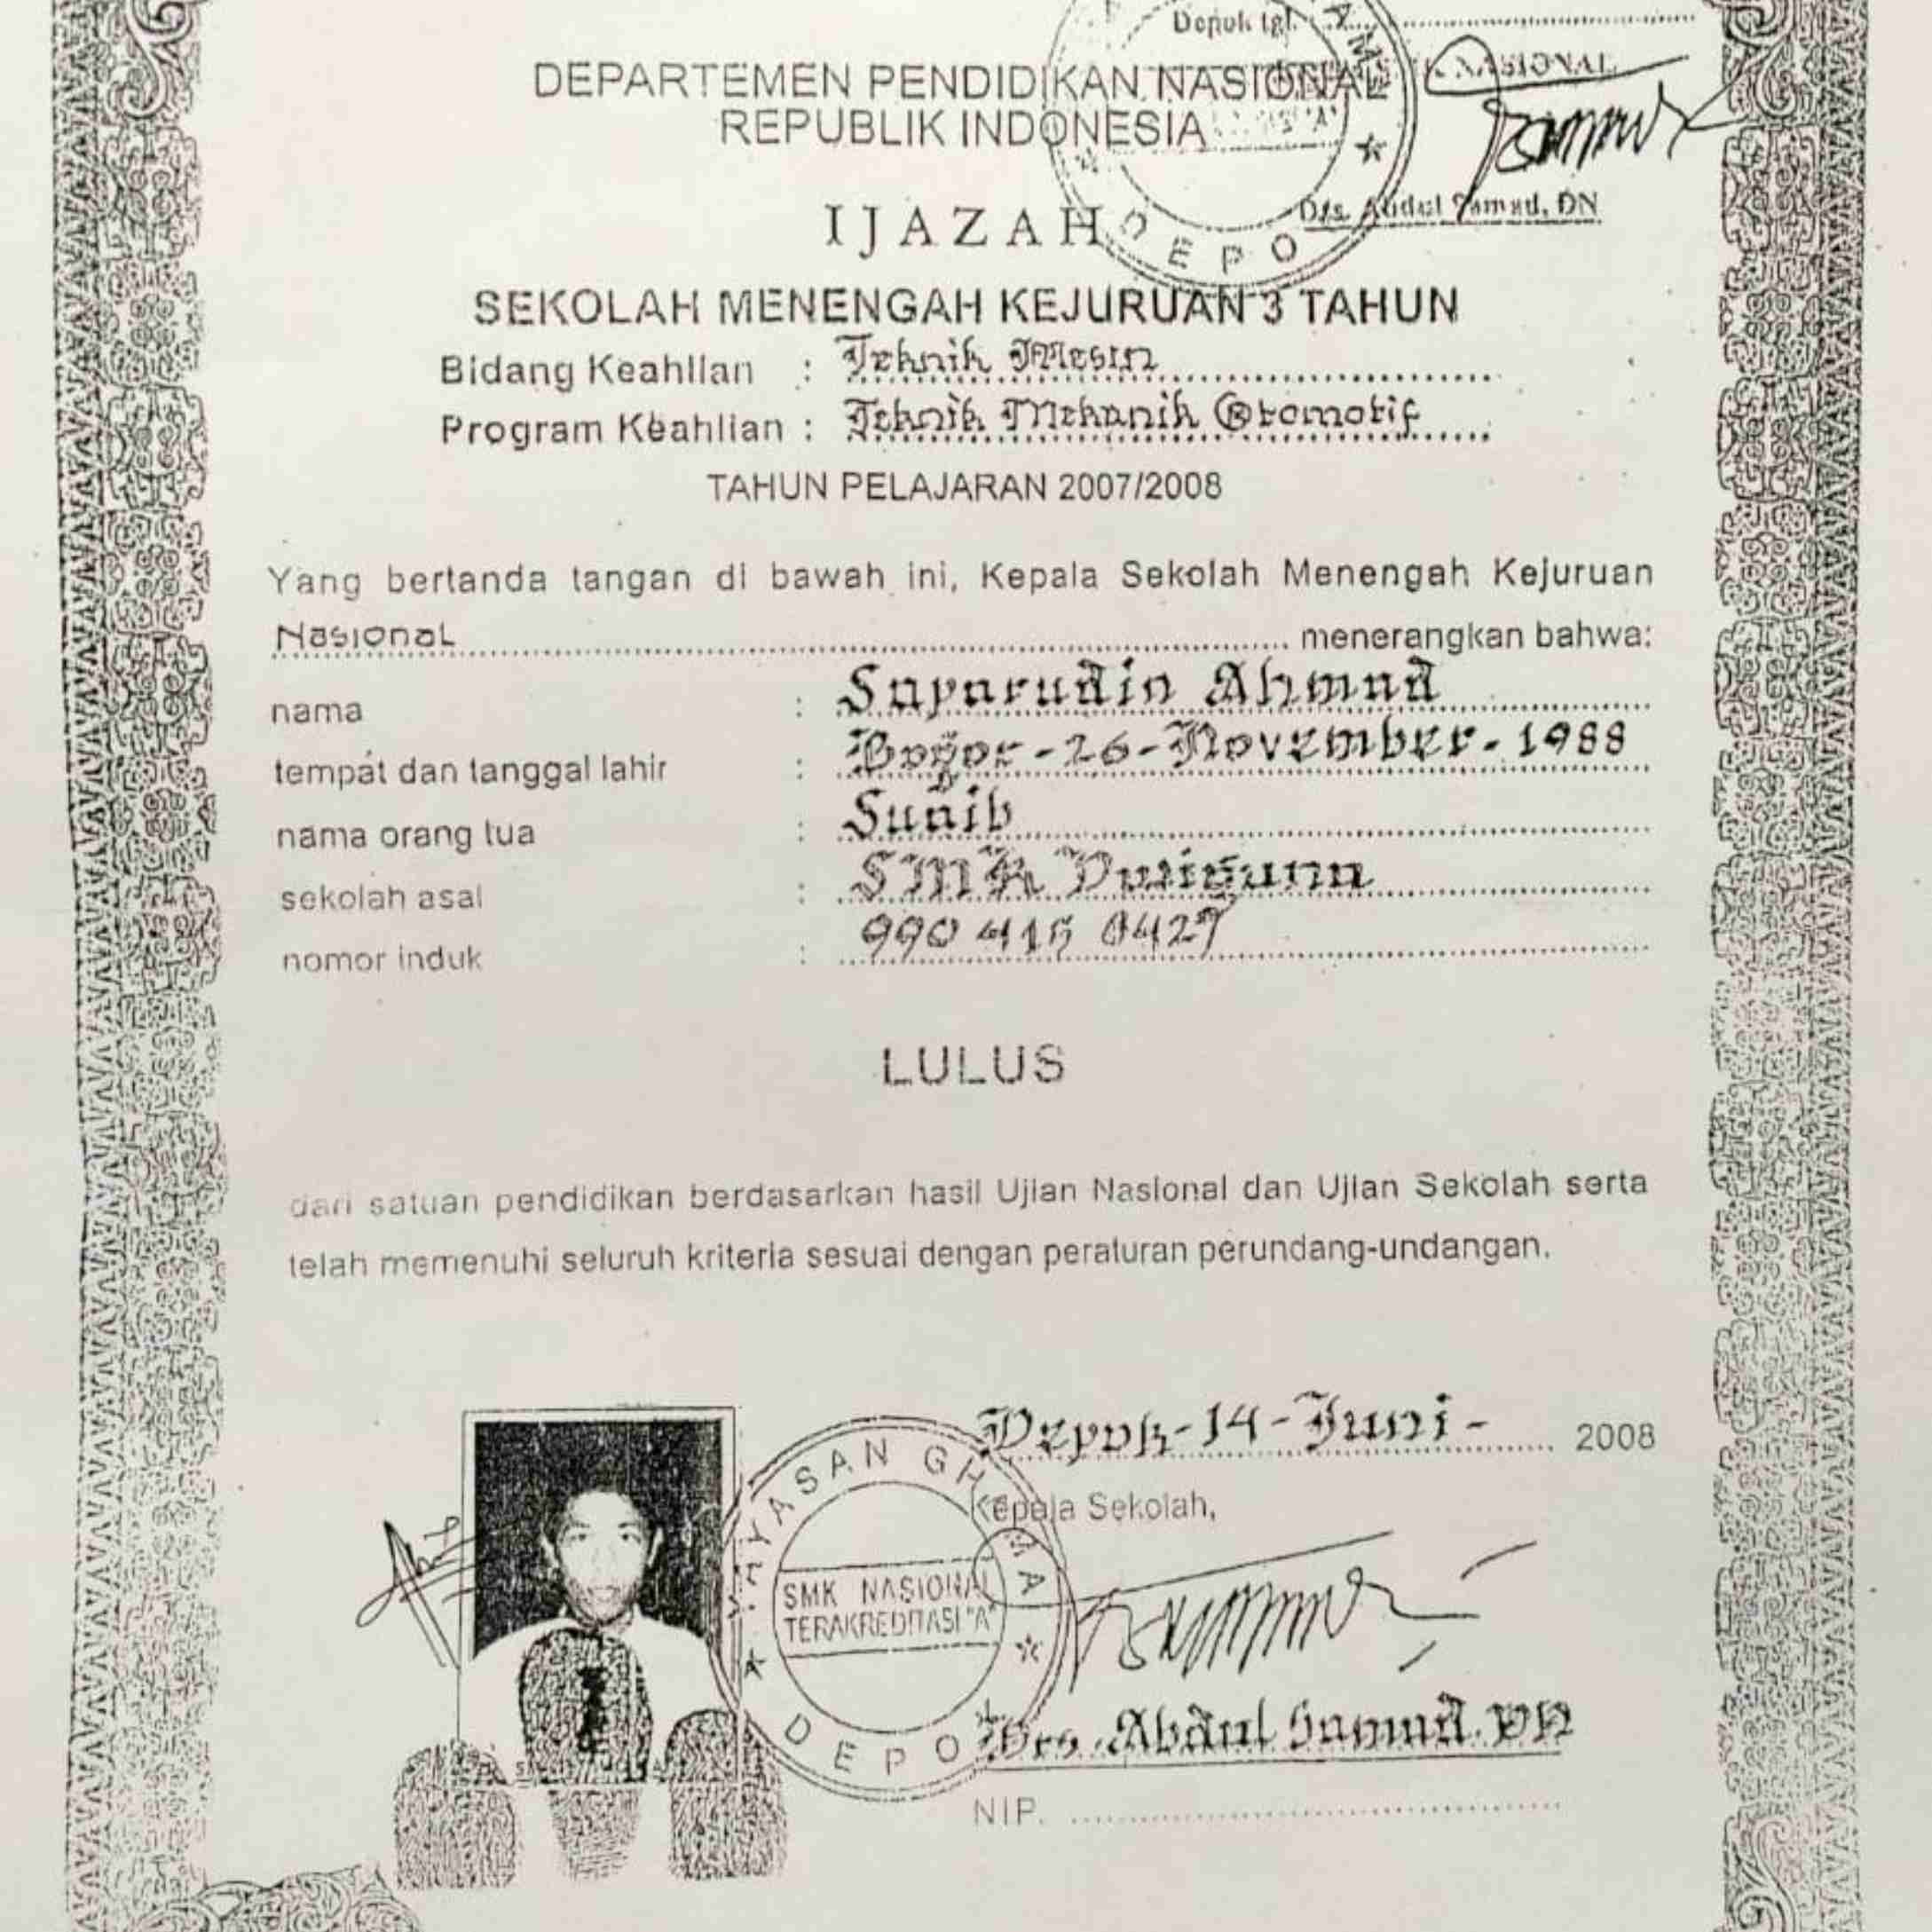 Depok tgl.
DEPARTEMEN PENDIDIKAN NASIONAL
NASIONAL
REPUBLIK INDONESIA
Drs. Abdul Samad, DN
IJAZAH
DEPO
SEKOLAH MENENGAH KEJURUAN 3 TAHUN
Bidang Keahlian : Teknik Mesin
Program Keahlian : Teknik Mekanik Otomotif
TAHUN PELAJARAN 2007/2008
Yang bertanda tangan di bawah ini, Kepala Sekolah Menengah Kejuruan
Nasional menerangkan bahwa:
nama : Saparudin Ahmad
tempat dan tanggal lahir : Bogor-26-November-1988
nama orang tua :
sekolah asal : SMK
nomor induk : 990 415 0427
LULUS
dari satuan pendidikan berdasarkan hasil Ujian Nasional dan Ujian Sekolah serta
telah memenuhi seluruh kriteria sesuai dengan peraturan perundang-undangan.
Depok-14-Juni- 2008
Kepala Sekolah,
YAYASAN
SMK NASIONAL
TERAKREDITASI "A"
DEPO
Drs. Abdul Samad. DN
NIP.